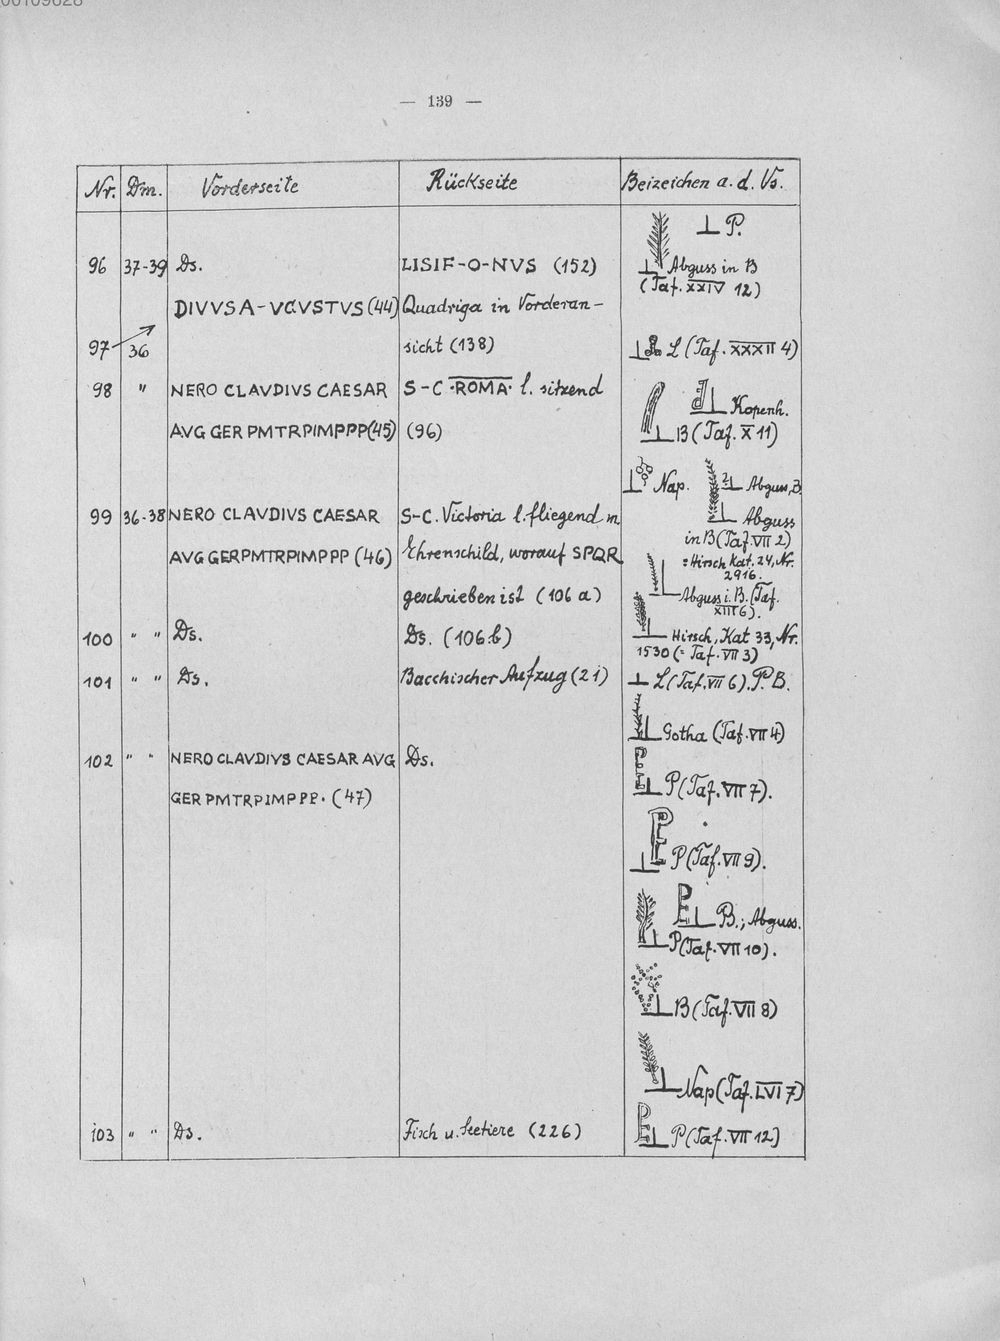 00109628
— 139 —
Nr. Dm. Vorderseite Rückseite Beizeichen a. d. Vs.
P.
96 37-39 Ds. LISIF-O-NVS (152) Abguss in B
(Taf. XXIV 12)
DIVVSA-VGVSTVS (44) Quadriga in Vorderan-
97 36 sicht (138) L (Taf. XXXII 4)
98 " NERO CLAVDIVS CAESAR S-C ·ROMA· l. sitzend Kopenh.
AVG GER PMTRPIMPPP (45) (96) B (Taf. X 11)
Nap. Abguss, B
99 36-38 NERO CLAVDIVS CAESAR S-C. Victoria l. fliegend m. Abguss
in B (Taf. VII 2)
AVG GERPMTRPIMPPP (46) Ehrenschild, worauf SPQR = Hirsch Kat. 24, Nr.
2916.
geschrieben ist (106 a) Abguss i. B. (Taf.
XIII 6).
100 " " Ds. Ds. (106.b) Hirsch, Kat 33, Nr.
1530 (= Taf. VII 3)
101 " " Ds. Bacchischer Aufzug (21) L (Taf. VII 6). P. B.
Gotha (Taf. VII 4)
102 " " NERO CLAVDIVS CAESAR AVG Ds.
P (Taf. VII 7).
GER PMTRPIMPPP. (47)
P (Taf. VII 9).
B.; Abguss.
P (Taf. VII 10).
B (Taf. VII 8)
Nap (Taf. LVI 7)
103 " " Ds. Fisch u. Seetiere (226) P (Taf. VII 12)